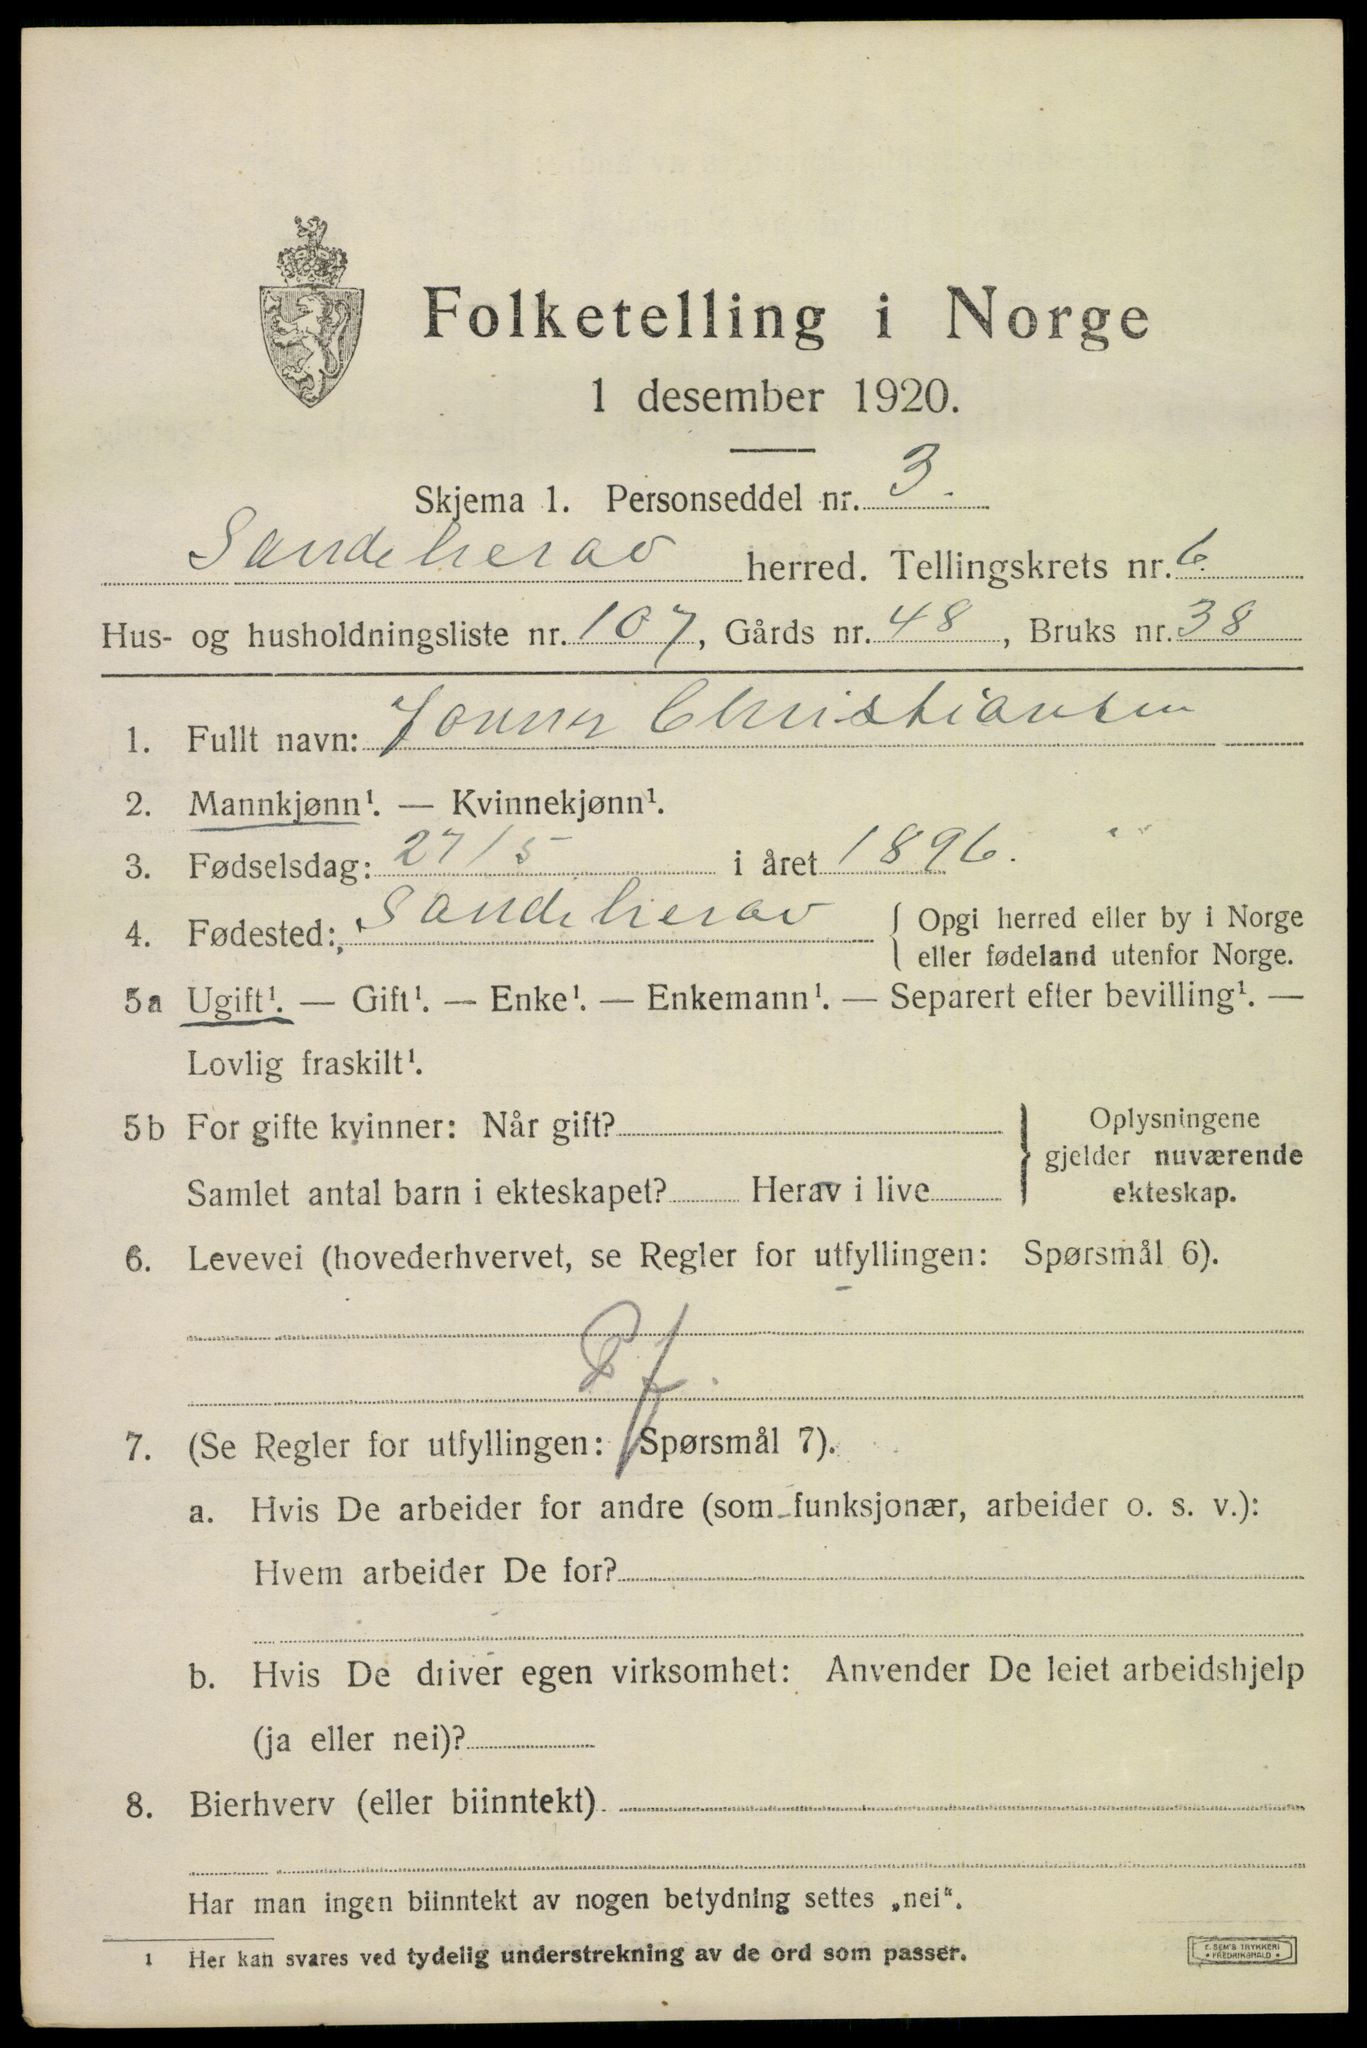 Folketelling i Norge
1 desember 1920.
Skjema 1. Personseddel nr. 3.
Sandeherav herred. Tellingskrets nr. 6.
Hus- og husholdningsliste nr. 107, Gårds nr. 48, Bruks nr. 38
1. Fullt navn: Christiansen
2. Mannkjønn¹. — Kvinnekjønn¹.
3. Fødselsdag: 27/5 i året 1896.
4. Fødested: Sandeherav { Opgi herred eller by i Norge
eller fødeland utenfor Norge.
5a Ugift¹. — Gift¹. — Enke¹. — Enkemann¹. — Separert efter bevilling¹. —
Lovlig fraskilt¹.
5b For gifte kvinner: Når gift?
Samlet antal barn i ekteskapet? Herav i live
} Oplysningene
gjelder nuværende
ekteskap.
6. Levevei (hovederhvervet, se Regler for utfyllingen: Spørsmål 6).
7. (Se Regler for utfyllingen: Spørsmål 7).
a. Hvis De arbeider for andre (som funksjonær, arbeider o. s. v.):
Hvem arbeider De for?
b. Hvis De driver egen virksomhet: Anvender De leiet arbeidshjelp
(ja eller nei)?
8. Bierhverv (eller biinntekt)
Har man ingen biinntekt av nogen betydning settes „nei“.
1 Her kan svares ved tydelig understrekning av de ord som passer.
E. SEM'S TRYKKERI
* FREDRIKSHALD *